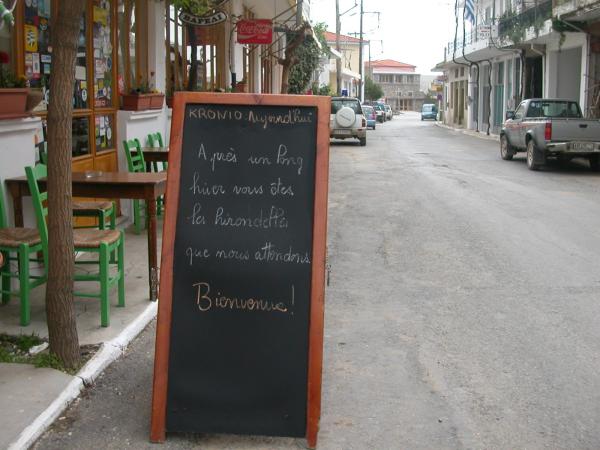 ΒΑΡΕΛΙ
Coca-Cola
KRONIO
Après un long
hiver vous êtes
les hirondelles
que nous attendons.
Bienvenue!